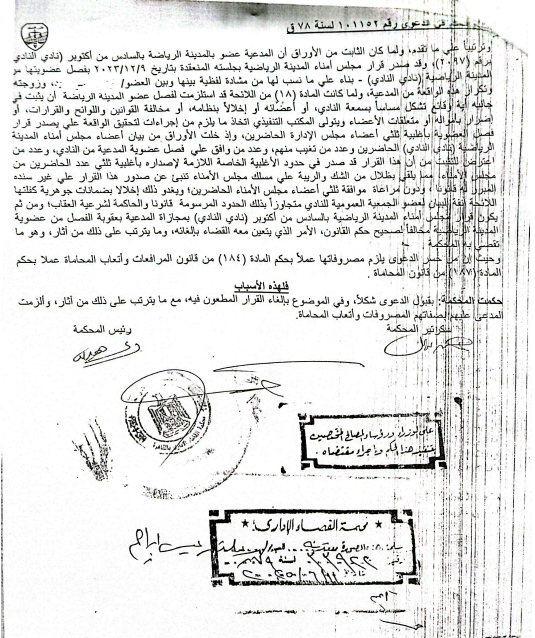 في الدعوى رقم ١٠١١٥٢ لسنة ٧٨ ق
وترتيباً علي ما تقدم، ولما كان الثابت من الأوراق أن المدعية عضو بالمدينة الرياضة بالسادس من أكتوبر (نادي النادي
برقم (٢٠٩٧)، وقد صدر قرار مجلس أمناء المدينة الرياضية بجلسته المنعقدة بتاريخ ٢٠٢٣/١٢/٩ بفصل عضويتها من
المدينة الرياضية (نادي النادي) - بناء علي ما نسب لها من مشادة لفظية بينها وبين العضو/ وزوجته
وتكرار هذه الواقعة من المدعية، ولما كانت المادة (١٨) من اللائحة قد استلزمت لفصل عضو المدينة الرياضة أن يثبت في
جانبه أية وقائع تشكل مساساً بسمعة النادي، أو أعضائه أو إخلالاً بنظامه، أو مخالفة القوانين واللوائح والقرارات، أو
إضرار بأمواله أو متعلقات الأعضاء ويتولى المكتب التنفيذي اتخاذ ما يلزم من إجراءات لتحقيق الواقعة علي يصدر قرار
فصل العضوية بأغلبية ثلثي أعضاء مجلس الإدارة الحاضرين، وإذ خلت الأوراق من بيان أعضاء مجلس أمناء المدينة
الرياضية (نادي النادي) الحاضرين وعدد من تغيب منهم، وعدد من وافق علي فصل عضوية المدعية من النادي، وعدد من
اعترض للتثبت من أن هذا القرار قد صدر في حدود الأغلبية الخاصة اللازمة لإصداره بأغلبية ثلثي عدد الحاضرين من
مجلس الأمناء، مما يلقي بظلال من الشك والريبة علي مسلك مجلس الأمناء تنبئ عن صدور هذا القرار علي غير سنده
المبرر له قانوناً، ودون مراعاة موافقة ثلثي أعضاء مجلس الأمناء الحاضرين؛ ويغدو ذلك إخلالا بضمانات جوهرية كفلتها
اللائحة آنفة البيان لعضو الجمعية العمومية للنادي متجاوزاً بذلك الحدود المرسومة قانونا والحاكمة لشرعية العقاب؛ ومن ثم
يكون قرار مجلس أمناء المدينة الرياضية بالسادس من أكتوبر (نادي النادي) بمجازاة المدعية بعقوبة الفصل من عضوية
المدينة الرياضية مخالفاً لصحيح حكم القانون، الأمر الذي يتعين معه القضاء بإلغائه، وما يترتب على ذلك من آثار، وهو ما
تقضي به المحكمة
وحيث إن من خسر الدعوى يلزم مصروفاتها عملاً بحكم المادة (١٨٤) من قانون المرافعات وأتعاب المحاماة عملا بحكم
المادة (١٨٧) من قانون المحاماة.
فلهذه الأسباب
حكمت المحكمة: بقبول الدعوى شكلاً، وفي الموضوع بإلغاء القرار المطعون فيه، مع ما يترتب على ذلك من آثار، وألزمت
المدعى عليهم بصفاتهم المصروفات وأتعاب المحاماة.
سكرتير المحكمة
رئيس المحكمة
على الوزراء ورؤساء المصالح المختصين
تنفيذ هذا الحكم وإجراء مقتضاه.
محكمة القضاء الإدارى